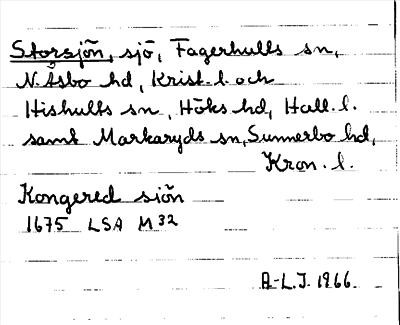 Storsjön, sjö, Fagerhults sn,
N. Åsbo hd, Krist. l. och
Hishults sn, Höks hd, Hall. l.
samt Markaryds sn, Sunnerbo hd,
Kron. l.
Kongered siön
1675 LSA M 32
A-L.J. 1966.